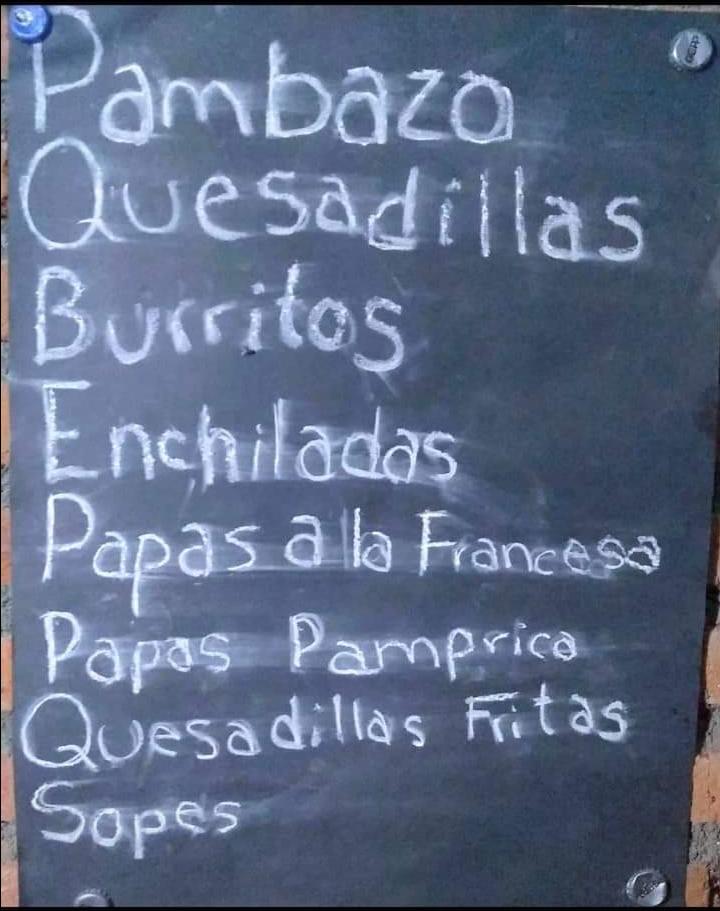 Pambazo
Quesadillas
Burritos
Enchiladas
Papas a la Francesa
Papas Pamprica
Quesadillas Fritas
Sopes